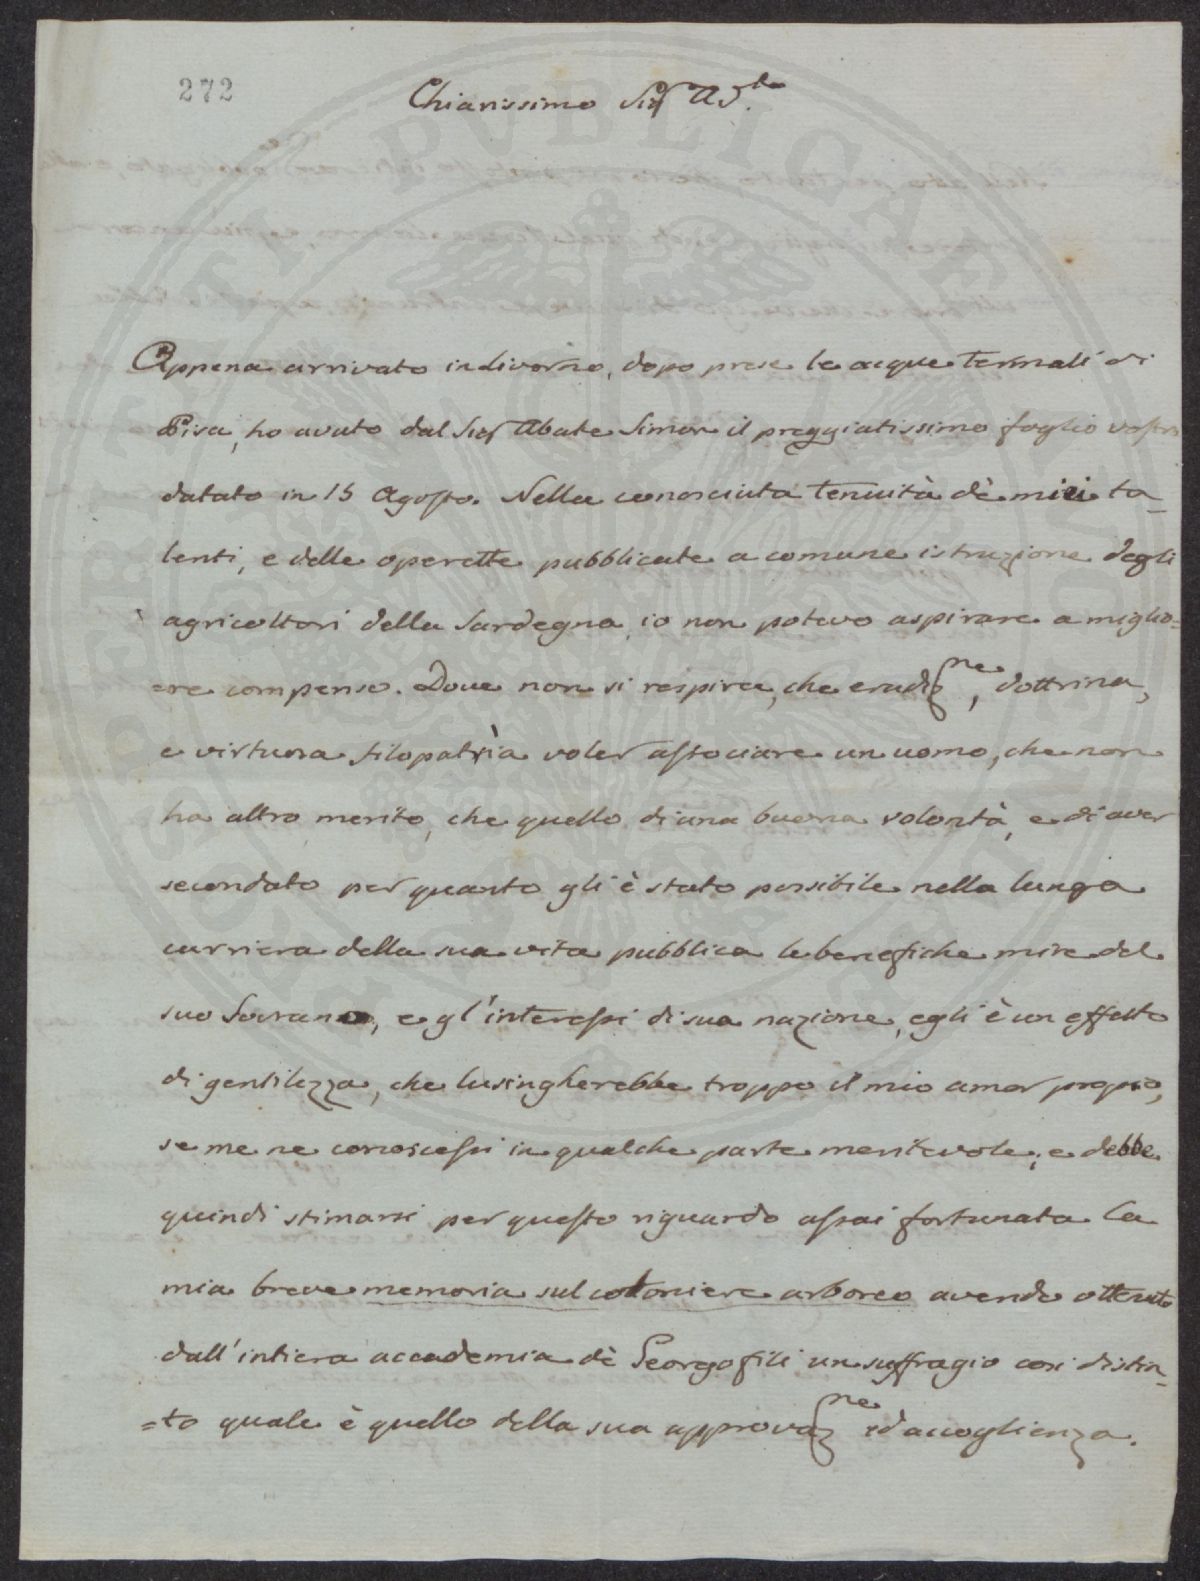 272
Chiarissimo Sig.
Appena arrivato in Livorno, dopo prese le acque termali di
Pisa, ho avuto dal Sig Abate Simon il preggiatissimo foglio vostro
datato in 15 Agosto. Nella conosciuta tenuità dè miei ta-
lenti, e delle operette pubblicate a comune istruzione degli
agricoltori della Sardegna, io non potevo aspirare a miglio=
=re compenso. Dove non si respira, che erudizne, dottrina,
e virtuosa filopatrìa voler associare un uomo, che non
ha altro merito, che quello di una buona volontà, e di aver
secondato per quanto gli è stato possibile nella lunga
carriera della sua vita pubblica le benefiche mire del
suo Sovrano, e gl'interessi di sua nazione, egli è un effetto
di gentilezza, che lusingherebbe troppo il mio amor proprio,
se me ne conoscessi in qualche parte meritevole; e debbe
quindi stimarsi per questo riguardo assai fortunata la
mia breve memoria sul cotoniere arboreo avendo ottenuto
dall'intiera accademia dè Georgofili un suffragio così distin=
=to quale è quello della sua approvazne ed accoglienza.